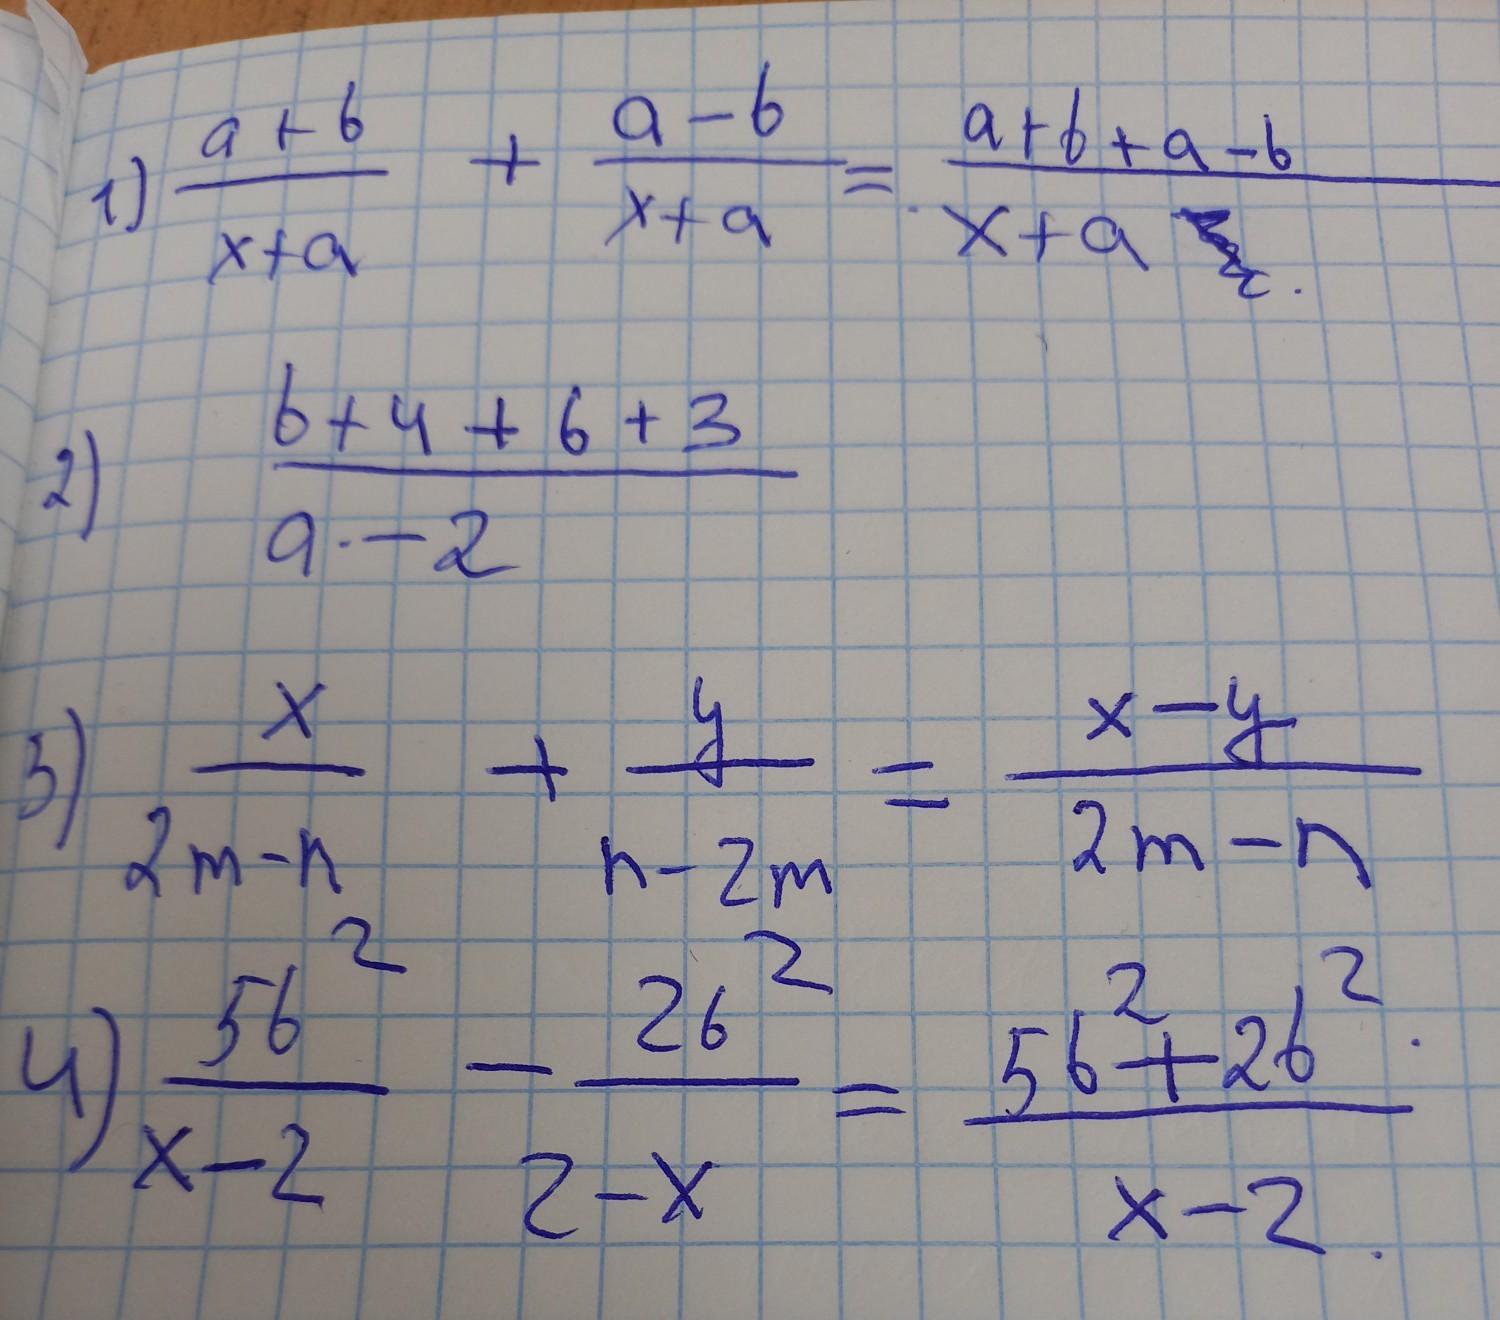 1) (a+b)/(x+a) + (a-b)/(x+a) = (a+b+a-b)/(x+a)
2) (b+4+6+3)/(a-2)
3) x/(2m-n) + y/(n-2m) = (x-y)/(2m-n)
4) 5b²/(x-2) - 2b²/(2-x) = (5b²+2b²)/(x-2)